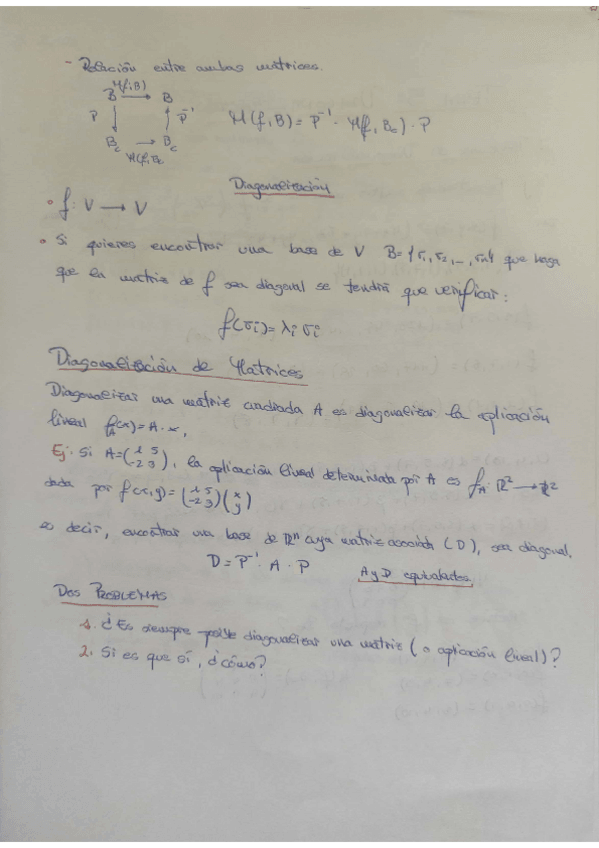 - Relación entre ambas matrices.
M(f,B)
B → B
P ↓ ↑ P⁻¹ M(f,B) = P⁻¹ · M(f,Bc) · P
Bc → Bc
M(f,Bc
Diagonalización
• f: V → V
• Si quieres encontrar una base de V B={v₁,v₂,...,vₙ} que haga
que la matriz de f sea diagonal se tendrá que verificar:
f(vᵢ)=λᵢ vᵢ
Diagonalización de Matrices
Diagonalizar una matriz cuadrada A es diagonalizar la aplicación
lineal f_A(x)=A·x.
Ej: Si A=(1 5 / -2 3), la aplicación lineal determinada por A es f_A: ℝ² → ℝ²
dada por f(x,y)=(1 5 / -2 3)(x / y)
es decir, encontrar una base de ℝⁿ cuya matriz asociada (D), sea diagonal.
D = P⁻¹ · A · P
A y D equivalentes.
DOS PROBLEMAS
1. ¿Es siempre posible diagonalizar una matriz (o aplicación lineal)?
2. Si es que sí, ¿cómo?